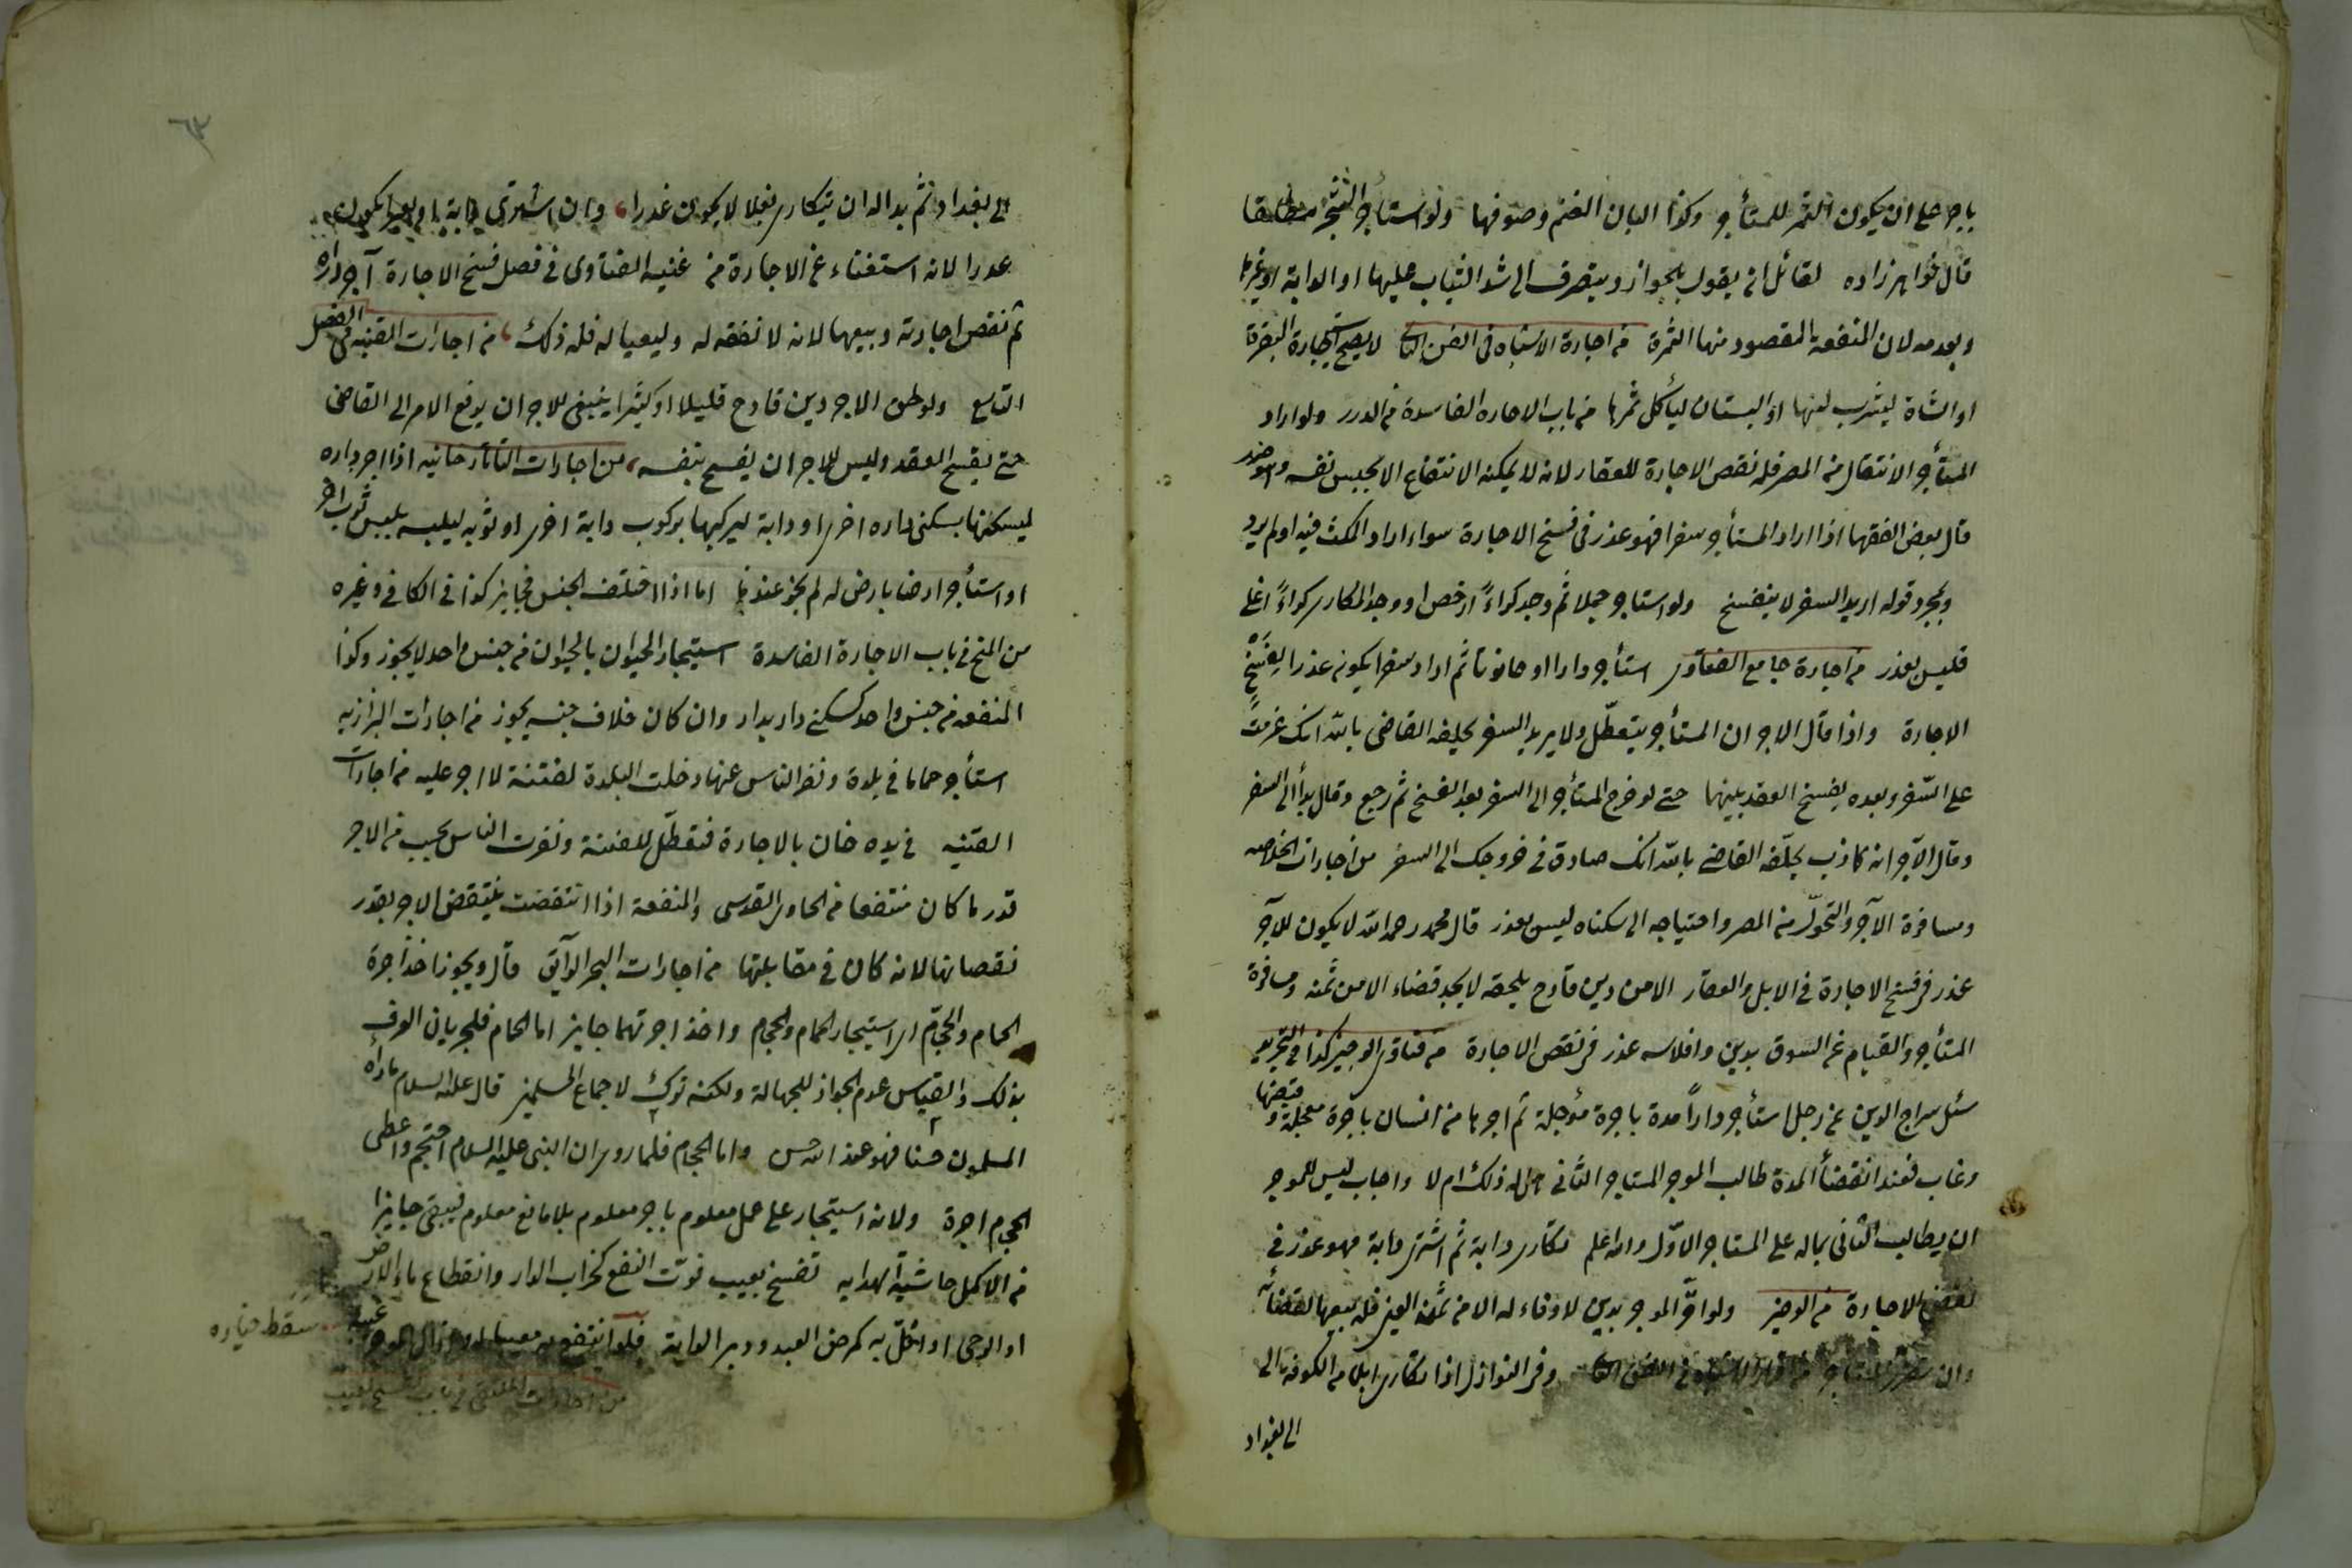 باجر على ان يكون الثمر للمستأجر وكذا البان الغنم وصوفها ولو استأجر الشجر مطلقا
قال خواهر زاده لقائل ان يقول بالجواز وينصرف الى شد الثياب عليها او الدابة او غيرها
وبعدمه لان المنفعة المقصود منها الثمرة من اجارة الاشباه فى الفن الثانى لا يصح استيجارة البقرة
او الشاة ليشرب لبنها او البستان ليأكل ثمرها من باب الاجاره الفاسدة من الدرر ولو اراد
المستأجر الانتقال من المصر فله نقص الاجارة للعقار لانه لا يمكنه الانتفاع الا بحبس نفسه وهو ضرر
قال بعض الفقها اذا اراد المستأجر سفرا فهو عذر فى فسخ الاجارة سواء اراد المكث فيه او لم يرد
وبمجرد قوله اريد السفر لا ينفسخ ولو استاجر جملا ثم وجد كراءً ارخص او وجد المكارى كراءً اغلى
فليس بعذر من اجارة جامع الفتاوى استأجر دارا او حانوتا ثم اراد سفرا يكون عذرا لِفَسْخِ
الاجارة واذا قال الاجر ان المستأجر يتعطّل ولا يريد السفر يحلفه القاضى بالله انك عزمت
على السّفر وبعده يفسخ العقد بينهما حتى لو خرج المستأجر الى السفر بعد الفسخ ثم رجع وقال بدأ لى السفر
وقال الآجر انه كاذب يحلّفه القاضى بالله انك صادق فى خروجك الى السفر من اجارات الخلاصه
ومسافرة الآجر والتحوّل من المصر واحتياجه الى سكناه ليس بعذر قال محمد رحمه الله لا يكون للآجر
عذر فى فسخ الاجارة فى الابل والعقار الا من دين فادح يلحقه لا يجد قضاء الا من ثمنه ومسافرة
المستأجر والقيام عن السوق بدين وافلاسه عذر فى نقص الاجارة من فتاوى الوجيز كذا فى التجريد
سئل سراج الدين عن رجل استأجر داراً مدة باجرة مؤجلة ثم اجرها من انسان باجرة معجلة وقبضها
وغاب فعند انقضأ المدة طالب الموجر المستاجر الثانى هل له ذلك ام لا واجاب ليس للموجر
ان يطالب الثانى بماله على المستاجر الاوّل والله اعلم تكارى دابة ثم اشترى دابة فهو عذر فى
نقض الاجارة من الوجيز ولو اقرّ الموجر بدين لا وفاء له الا من ثمن العين فله بيعها لقضائه
وان تضرر المستاجر من اقرار الاشباه فى الفن الثانى وفى النوازل اذا تكارى ابلا من الكوفه الى
الى بغداد
٦٣
الى بغداد ثم بدا له ان يتكارى بغلا لا يكون عذرا، وان اشترى دابة او بعيرا يكون
عذرا لانه استغناء عن الاجارة من غنية الفتاوى فى فصل فسخ الاجارة آجر داره
ثم نقص اجارته وبيعها لانه لا نفقه له ولعياله فله ذلك، من اجارات القنيه فى الفصل
التاسع ولو طى الاجر دين فادح قليلا او كثيرا ينبغى للاجر ان يرفع الامر الى القاضى
حتى يفسخ العقد وليس للاجر ان يفسخ بنفسه، من اجارات التاتارخانيه اذا اجر داره
ليسكنها بسكنى داره اخرى او دابة ليركبها بركوب دابة اخرى او ثوبه ليلبسه بلبس ثوب اخر
او استأجر ارضا بارض له لم يجز عندنا اما اذا اختلف الجنس فجايز كذا فى الكافى وغيره
من المنح فى باب الاجارة الفاسدة استيجار الحيوان بالحيوان من جنس واحد لا يجوز وكذا
المنفعه من جنس واحد كسكنى دار بدار وان كان خلاف جنسه يجوز من اجارات البزازيه
استأجر حماما فى بلدة ونفر الناس عنها وخلت البلدة لفتنة لا اجر عليه من اجارات
القنيه فى يده خان بالاجارة فتعطّل للفتنة ونفرت الناس يجب من الاجر
قدر ما كان منتفعا من الحاوى القدسى والمنفعة اذا انتقضت ينتقض الاجر بقدر
نقصانها لانه كان فى مقابلتها من اجارات البحر الرآئق قال ويجوز اخذ اجرة
الحمام والحجّام اى استيجار الحمام والحجام واخذ اجرتهما جايز اما الحمام فلجريان العرف
بذلك والقياس عدم الجواز للجهالة ولكنه ترك لاجماع المسلمين قال عليه السلام ما رآه
المسلمون حسنا فهو عند الله حسن واما الحجام فلما روى ان النبى عليه السلام احتجم واعطى
الحجام اجرة ولانه استيجار على عمل معلوم باجر معلوم بلا مانع معلوم فيبقى جايزا
من الاكمل حاشية الهدايه تفسخ بعيب فوّت النفع كخراب الدار وانقطاع ماء الارض
او الرحى او اخلّ به كمرض العبد ودبر الدابة فلو انتفع به معيبا او ازال الموجر عيبه سقط خياره
من اجارات الملتقى فى باب فسخ بعيب